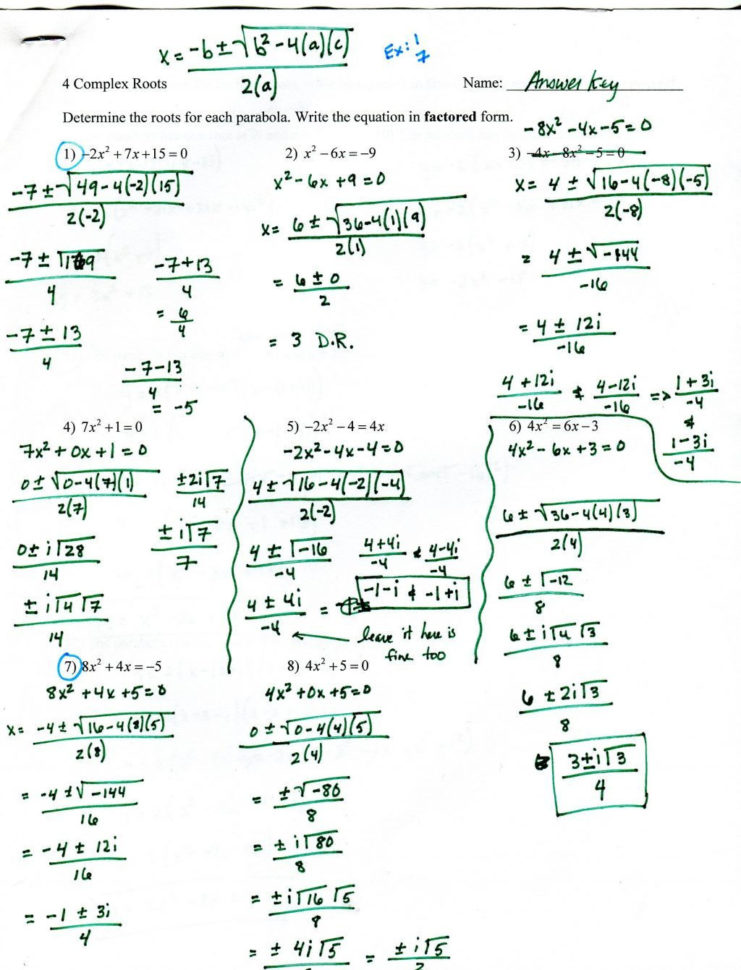 x = -b ± √b² - 4(a)(c) / 2(a)
Ex: 1/7
4 Complex Roots
Name: Answer Key
Determine the roots for each parabola. Write the equation in factored form.
1) -2x² + 7x + 15 = 0
-7 ± √49 - 4(-2)(15) / 2(-2)
-7 ± √169 / 4
-7 + 13 / 4
= 6/4
-7 ± 13 / 4
-7 - 13 / 4
= -5
2) x² - 6x = -9
x² - 6x + 9 = 0
x = 6 ± √36 - 4(1)(9) / 2(1)
= 6 ± 0 / 2
= 3 D.R.
-8x² - 4x - 5 = 0
3) -4x - 8x² - 5 = 0
x = 4 ± √16 - 4(-8)(-5) / 2(-8)
= 4 ± √-144 / -16
= 4 ± 12i / -16
4 + 12i / -16 & 4 - 12i / -16 => 1 + 3i / -4
&
1 - 3i / -4
4) 7x² + 1 = 0
7x² + 0x + 1 = 0
0 ± √0 - 4(7)(1) / 2(7)
±2i√7 / 14
0 ± i√28 / 14
± i√7 / 7
± i√4 √7 / 14
5) -2x² - 4 = 4x
-2x² - 4x - 4 = 0
4 ± √16 - 4(-2)(-4) / 2(-2)
4 ± √-16 / -4
4 + 4i / -4 & 4 - 4i / -4
4 ± 4i / -4 =
-1 - i & -1 + i
leave it here is
fine too
6) 4x² = 6x - 3
4x² - 6x + 3 = 0
6 ± √36 - 4(4)(3) / 2(4)
6 ± √-12 / 8
6 ± i√4 √3 / 8
6 ± 2i√3 / 8
3 ± i√3 / 4
7) 8x² + 4x = -5
8x² + 4x + 5 = 0
x = -4 ± √16 - 4(8)(5) / 2(8)
= -4 ± √-144 / 16
= -4 ± 12i / 16
= -1 ± 3i / 4
8) 4x² + 5 = 0
4x² + 0x + 5 = 0
0 ± √0 - 4(4)(5) / 2(4)
= ± √-80 / 8
= ± i√80 / 8
= ± i√16 √5 / 8
= ± 4i√5 = ± i√5